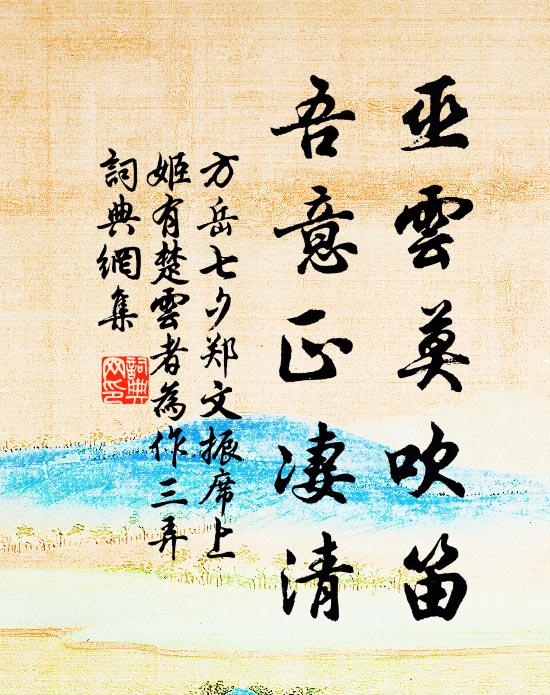 巫雲莫吹笛
吾意正凄清
方岳七夕郑文振席上
姬有楚雲者為作三弄
詞典網集
詞典
网印